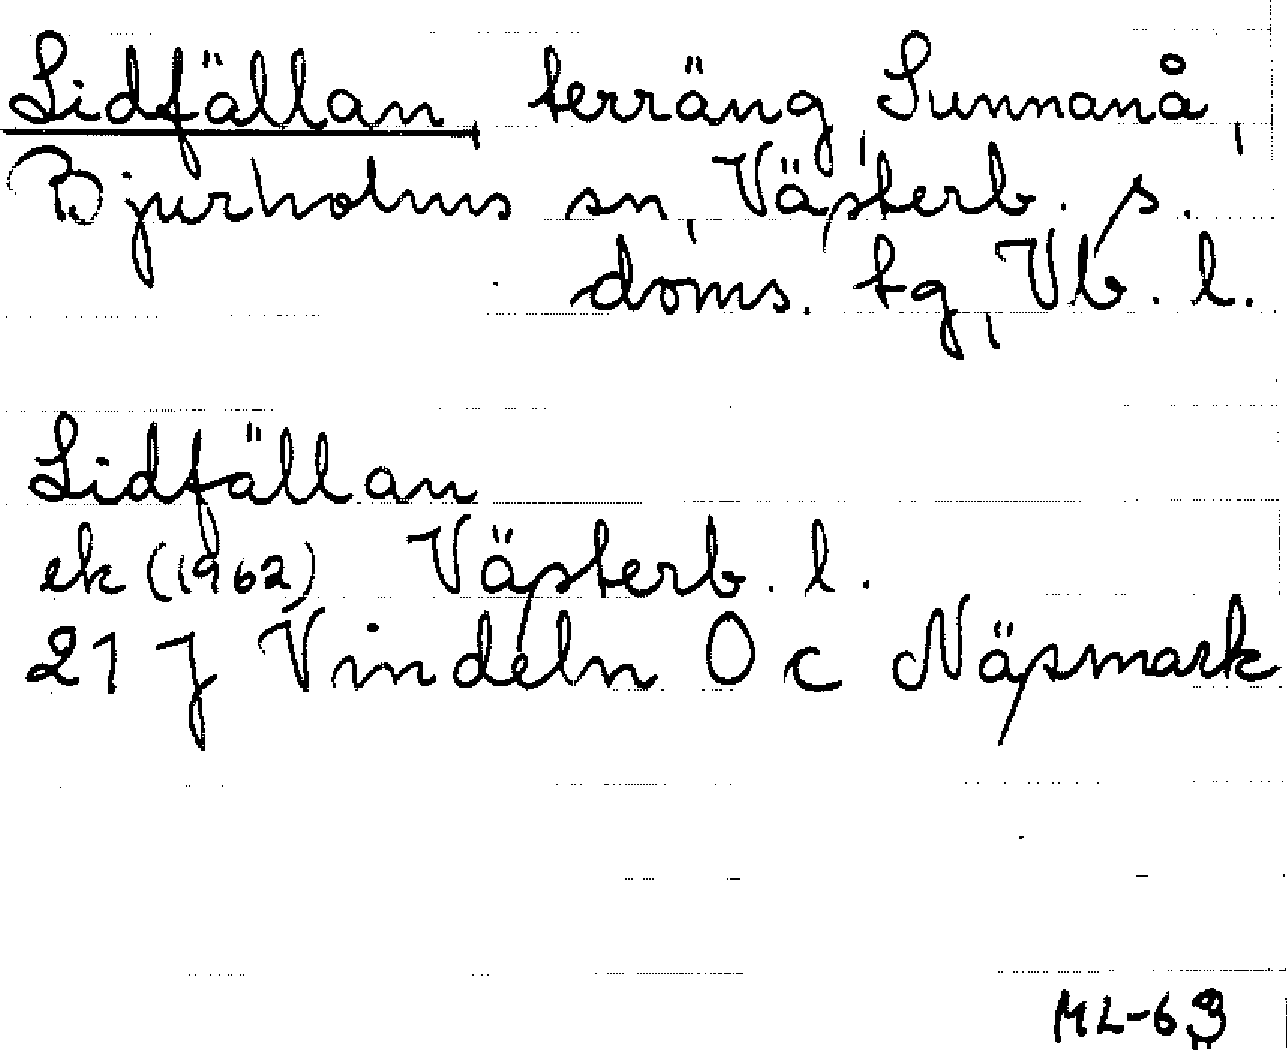 Lidfällan, terräng, Sunnanå,
Bjurholms sn, Västerb. s.
doms. tg, Vb. l.
Lidfällan
ek (1962) Västerb. l.
21 J Vindeln 0 c Näsmark
ML-69